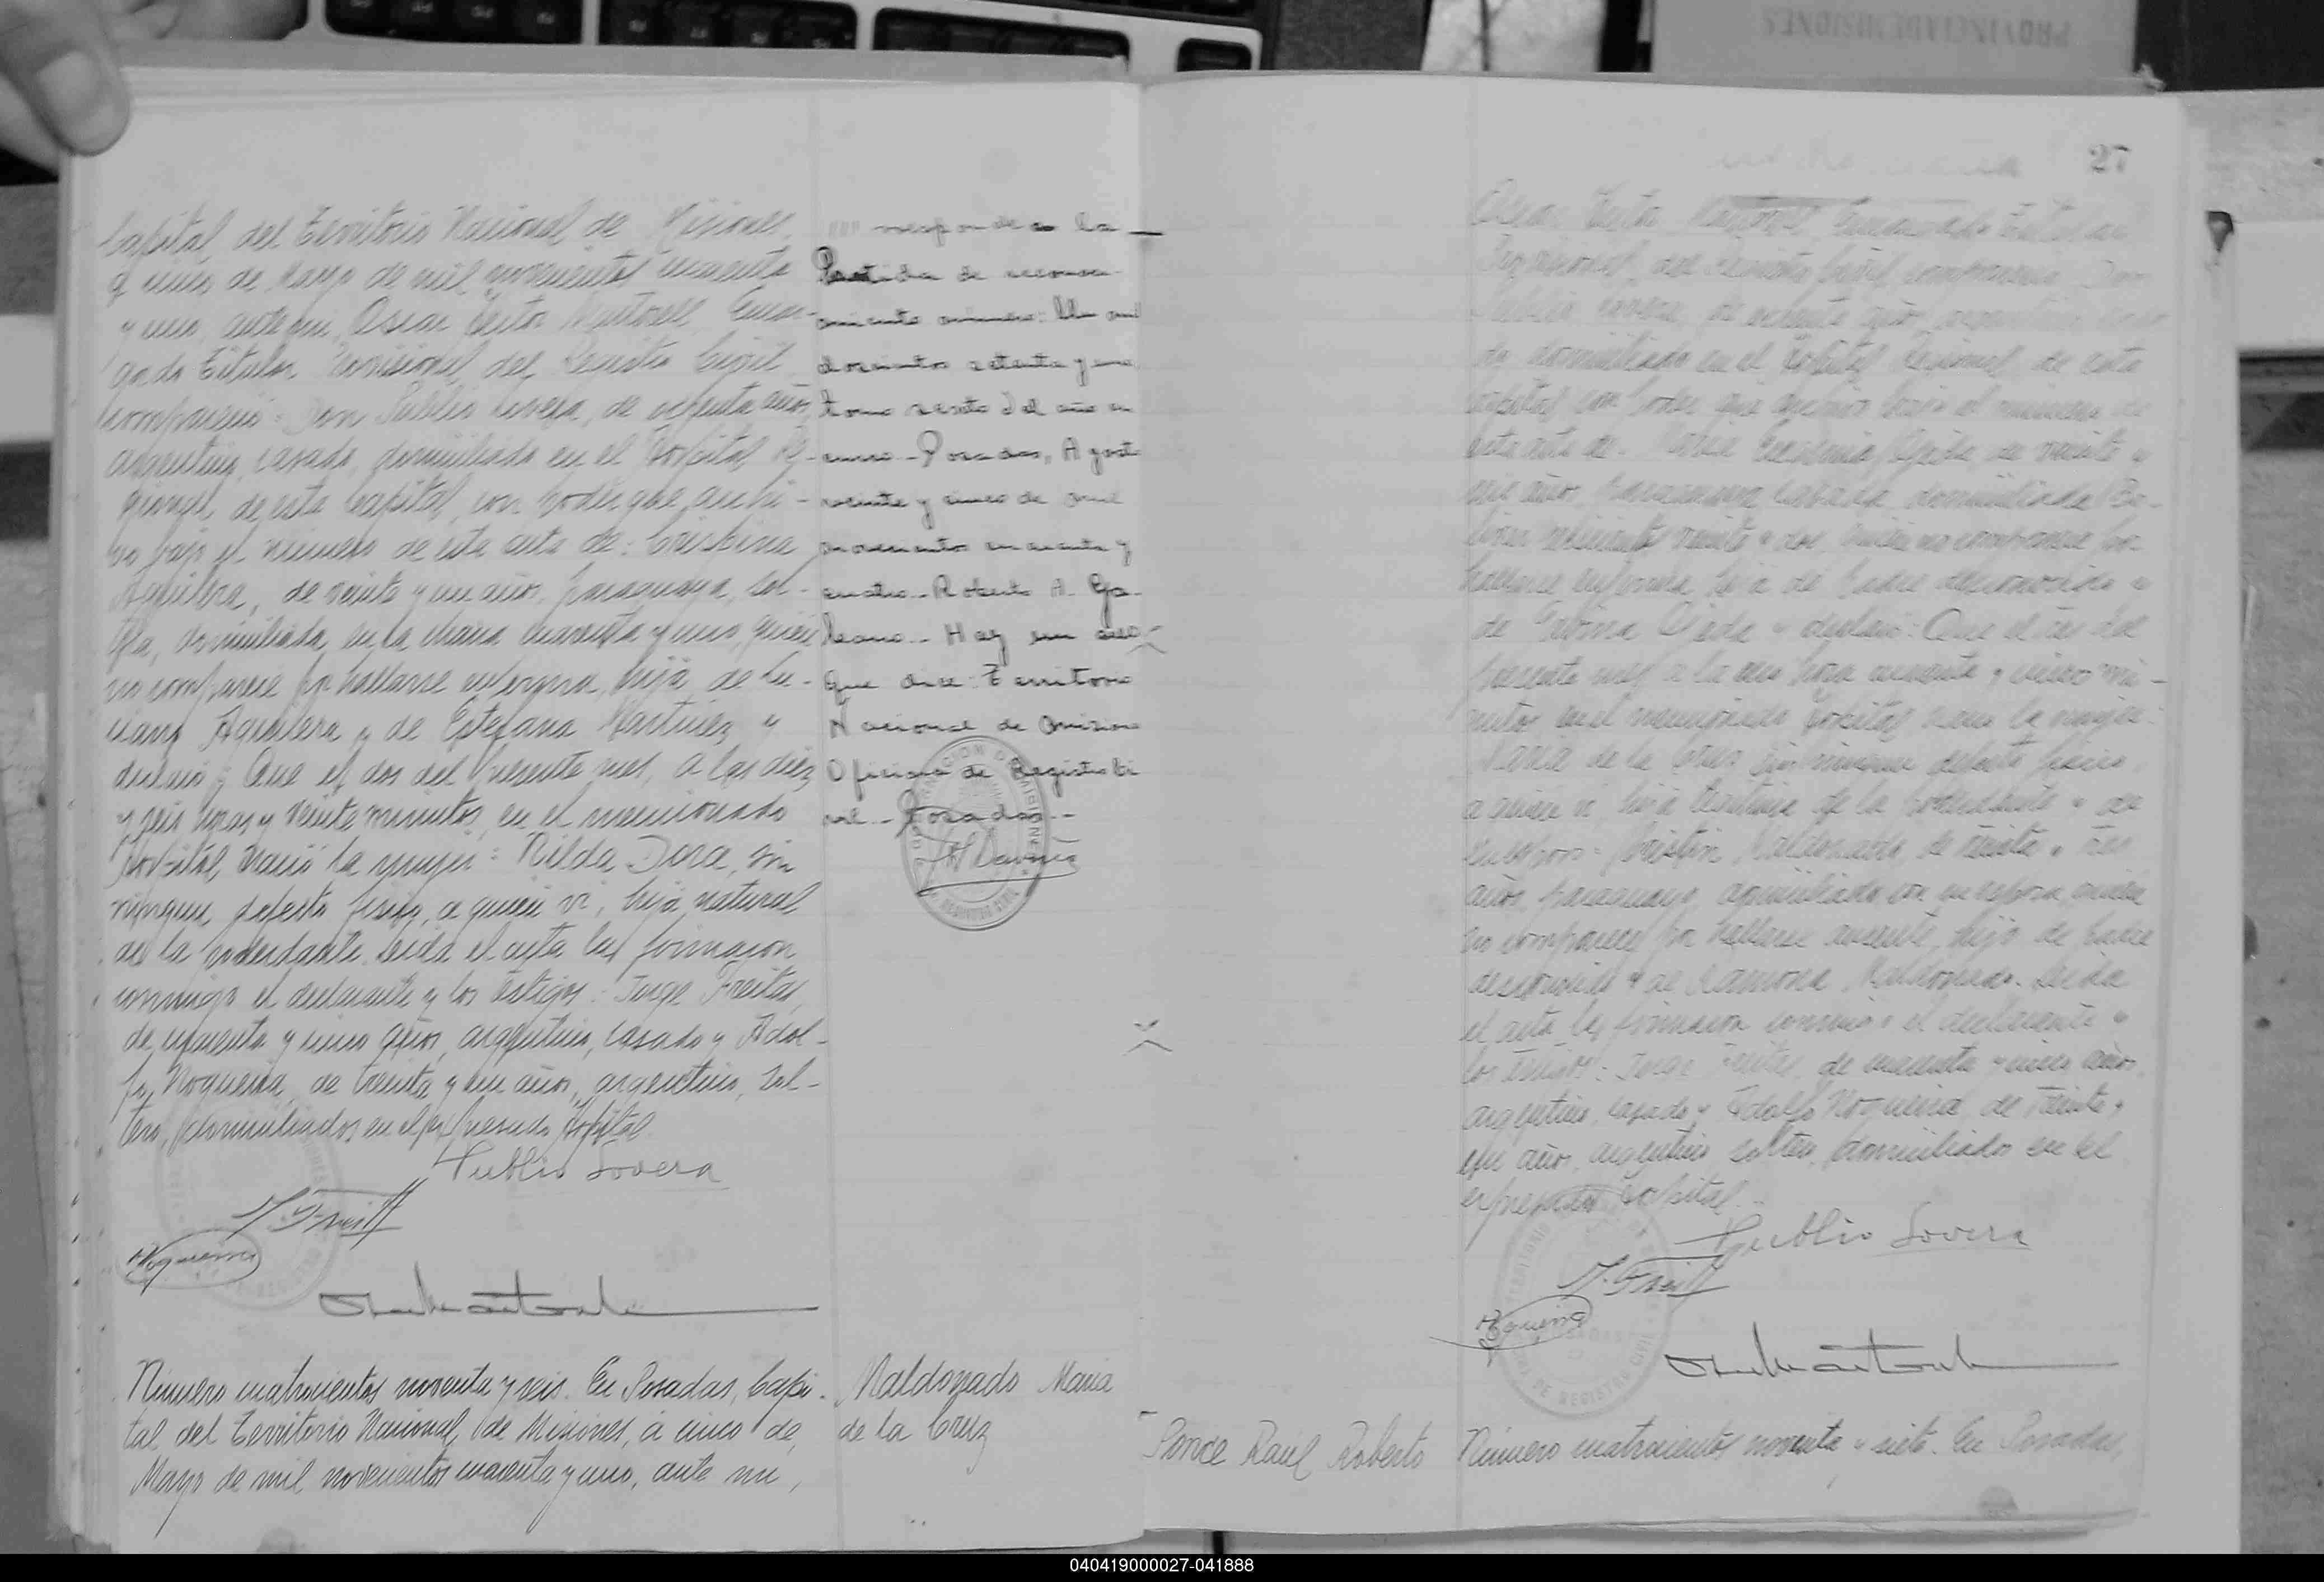 Capital del Territorio Nacional de Misiones,
a cinco de Mayo de mil novecientos cuarenta
y uno, ante mi, Oscar Martorell, Encar-
gado Titular Provisional del Registro Civil
compareció: Don Publio Lovera, de años,
argentino, casado, domiciliado en el Hospital Re-
gional de esta Capital, con poder que archi-
vo bajo el número de este acta de: Cristina
Aguilera, de veinte y un años, paraguaya, sol-
tera, domiciliada en la chacra cuarenta y uno, quien
no comparece por hallarse enferma, hija de Lu-
ciano Aguilera y de Estefana Martinez y
declaró: Que el dos del presente mes, a las diez
y seis horas y veinte minutos, en el mencionado
Hospital, nació la mujer: Nilda Dora, sin
ningun defecto fisico, a quien vi, hija natural
de la poderdante. Leida el acta la firmaron
conmigo el declarante y los testigos: Jorge Freitas,
de cuarenta y cinco años, argentino, casado y Adol-
fo Nogueira, de treinta y un años, argentino, sol-
tero, domiciliados en el expresado Hospital.
Publio Lovera
J. Freitas
ANogueira
//// rresponde a la
Partida de reconoci-
miento número: Un mil
doscientos setenta y uno
tomo sexto del año en
curso - Posadas, Agosto
veinte y cinco de mil
novecientos cuarenta y
cuatro - Roberto A. Ga-
leano - Hay un sello
que dice: Territorio
Nacional de Misiones
Oficina de Registro Ci
vil - Posadas -
Número cuatrocientos noventa y seis. En Posadas, Capi-
tal del Territorio Nacional de Misiones, á cinco de
Mayo de mil novecientos cuarenta y uno, ante mi,
Maldonado Maria
de la Cruz
27
Oscar Martorell, Encargado Titular
Provisional del Registro Civil, compareció: Don
Publio Lovera, de años, argentino, casa-
do, domiciliado en el Hospital Regional de esta
Capital, con poder que archivo bajo el número de
este acta de: Ojeda, de veinte y
años, paraguaya, casada, domiciliada Bo-
livar veinte y dos, quien no comparece por
hallarse enferma, hija de padre desconocido y
de Ojeda y declaró: Que el tres del
presente mes, a la una hora cuarenta y cinco mi-
nutos en el mencionado Hospital, nació la mujer:
Maria de la Cruz, sin ningun defecto fisico,
a quien vi, hija legitima de la poderdante y de
su esposo: Maldonado, de treinta y tres
años, paraguayo, domiciliado con su esposa, quien
no comparece por hallarse ausente, hijo de padre
desconocido y de Ramona Maldonado. Leida
el acta la firmaron conmigo el declarante y
los testigos: Jorge Freitas, de cuarenta y cinco años,
argentino, casado y Adolfo Nogueira, de treinta y
un años, argentino, soltero, domiciliados en el
expresado Hospital.
Publio Lovera
J. Freitas
ANogueira
Ponce Raúl Roberto
Número cuatrocientos noventa y siete. En Posadas,
040419000027-041888